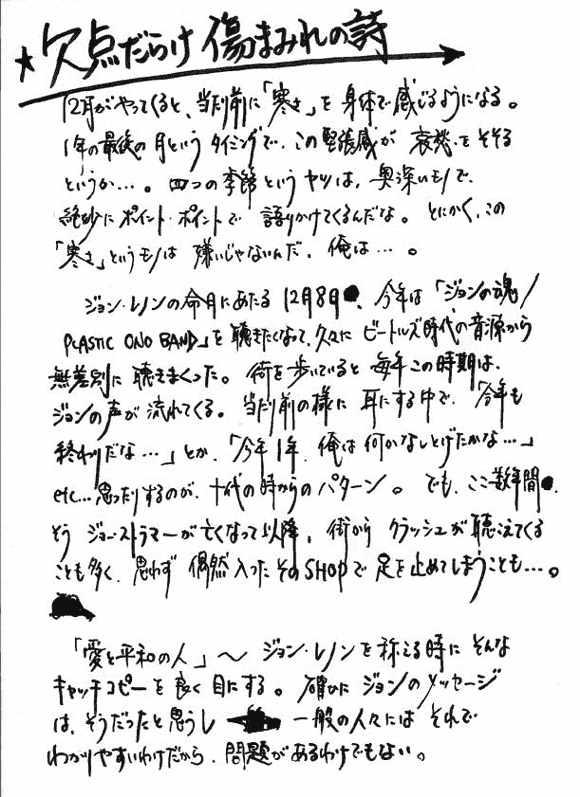 ★欠点だらけ 傷まみれの詩
12月がやってくると、当たり前に「寒さ」を身体で感じるようになる。
1年の最後の月というタイミングで、この緊張感が哀愁をそそる
というか…。四つの季節というヤツは、奥深いモノで、
絶妙にポイント・ポイントで語りかけてくるんだな。とにかく、この
「寒さ」というモノは嫌いじゃないんだ、俺は…。
ジョン・レノンの命日にあたる12月8日、今年は「ジョンの魂/
PLASTIC ONO BAND」を聴きたくなって、久々にビートルズ時代の音源から
無差別に聴きまくった。街を歩いていると毎年この時期は、
ジョンの声が流れてくる。当たり前の様に耳にする中で、「今年も
終わりだな…」とか、「今年1年、俺は何かなしとげたかな…」
etc…思ったりするのが、十代の時からのパターン。でも、ここ数年間、
そうジョー・ストラマーが亡くなって以降、街からクラッシュが聴こえてくる
ことも多く、思わず偶然入ったそのSHOPで足を止めてしまうことも…。
「愛と平和の人」〜ジョン・レノンを称える時にそんな
キャッチコピーを良く目にする。確かにジョンのメッセージ
は、そうだったと思うし 一般の人々にはそれで
わかりやすいわけだから、問題があるわけでもない。